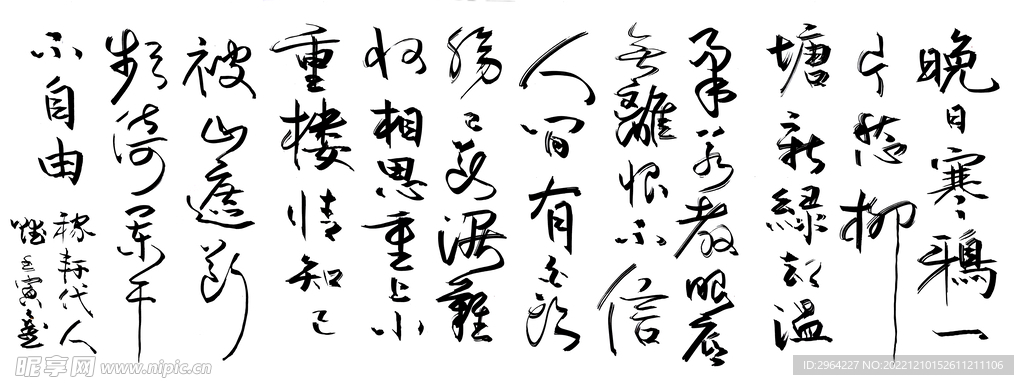 晚日寒鴉一
片愁柳
塘新綠却温
柔若教眼底
無離恨不信
人间有白头
肠已断泪難
收相思重上小
重楼情知已
被山遮断
频倚阑干
不自由
稼轩代人
赋壬寅
昵享网 www.nipic.cn
ID:2964227 NO:20221210152611211106